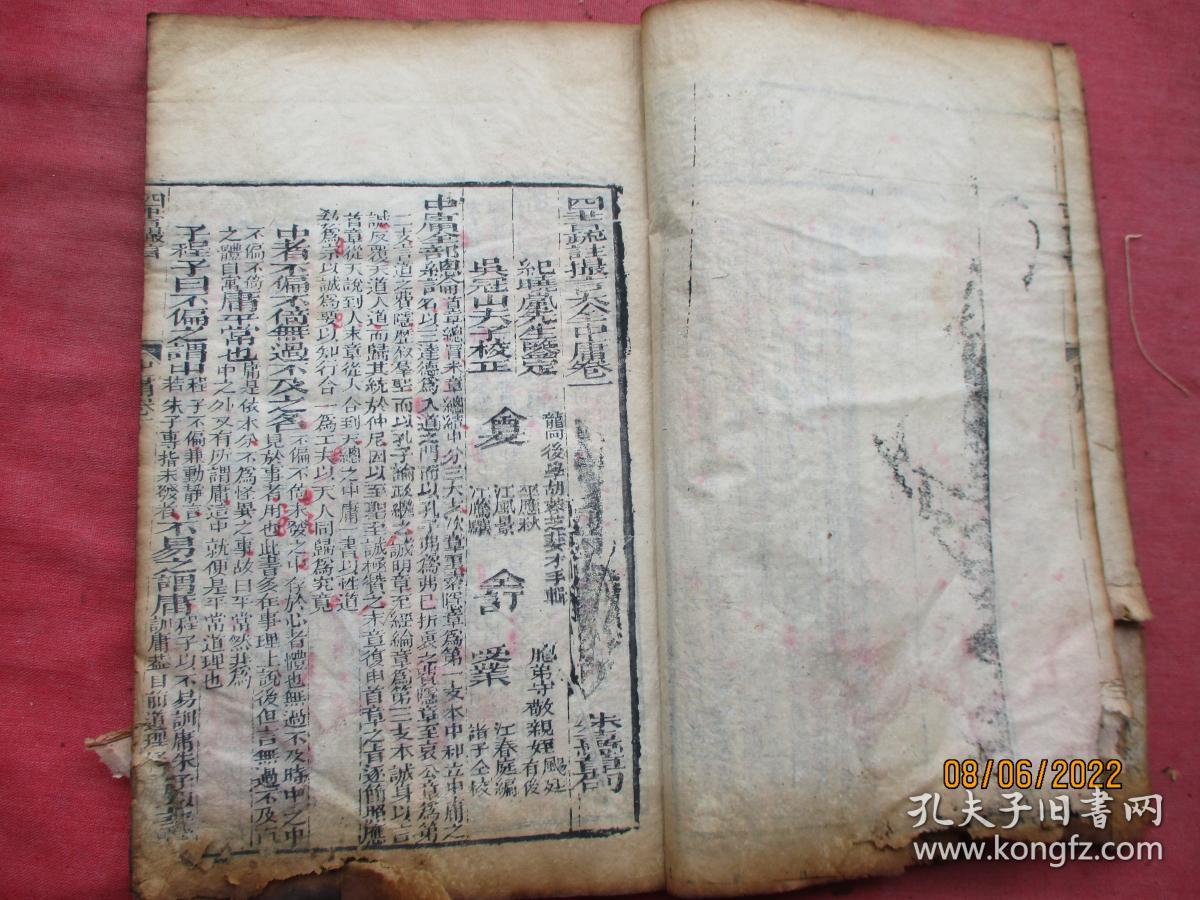 四書疏註撮言大全中庸卷一
朱子章句
龍岡後學胡蓉芝斐才手輯
胞弟守敬
紀曉嵐先生鑒定
吳冠山夫子校正
會友
巫應秋
江風景
江應驥
仝訂
受業
江春庭編
諸子仝校
中庸全部總論首章總冒末章總結中分三大支次章至索隱章為第一支本中和立中庸之
名以三達德為入道之門而以孔子兩為弗已折衷之費隱章至哀公章為第
二支言道之費隱歷敘群聖而以孔子論政繼之誠明章至經綸章為第三支本誠身以言
誠反覆天道人道而歸其統於仲尼因以至聖至誠極贊之末章復申首章之旨逐簡照應
首章從天說到人末章從人合到天總之中庸一書以性道
教為宗以誠為要以知行合一為工夫以天人同歸為究竟
中者不偏不倚無過不及之名不偏不倚未發之中存於心者體也無過不及時中之中
見於事者用也此書多在事理上說後但言無過不及而
不偏不倚
之體自寓庸平常也庸是依本分不為怪異之事故曰平常然非為
中之外又有所謂庸這中就便是平常道理也
子程子曰不偏之謂中程子不偏兼動靜言
若朱子專指未發者不易之謂庸程子以不易訓庸朱子以平常
訓庸蓋目前道理
四書撮言
中庸卷一
08/06/2022
孔夫子旧书网
www.kongfz.com